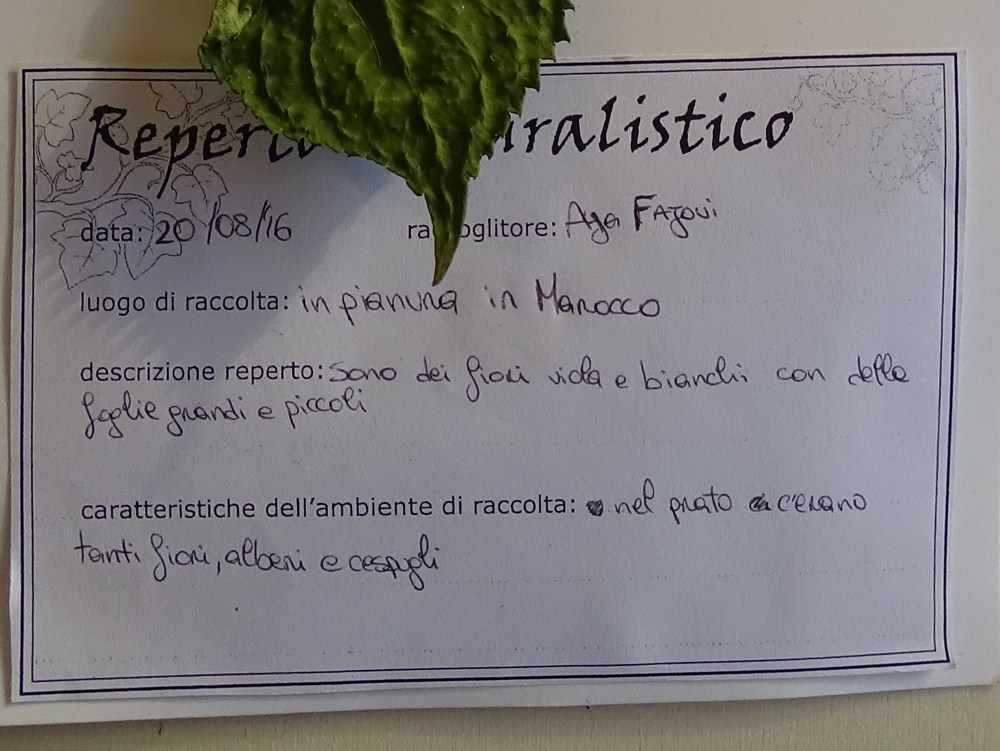 Reperto uralistico
data: 20/08/16 raccoglitore: Aya
luogo di raccolta: in pianura in Marocco
descrizione reperto: sono dei fiori viola e bianchi con delle
foglie grandi e piccoli
caratteristiche dell'ambiente di raccolta: nel prato c'erano
tanti fiori, alberi e cespugli